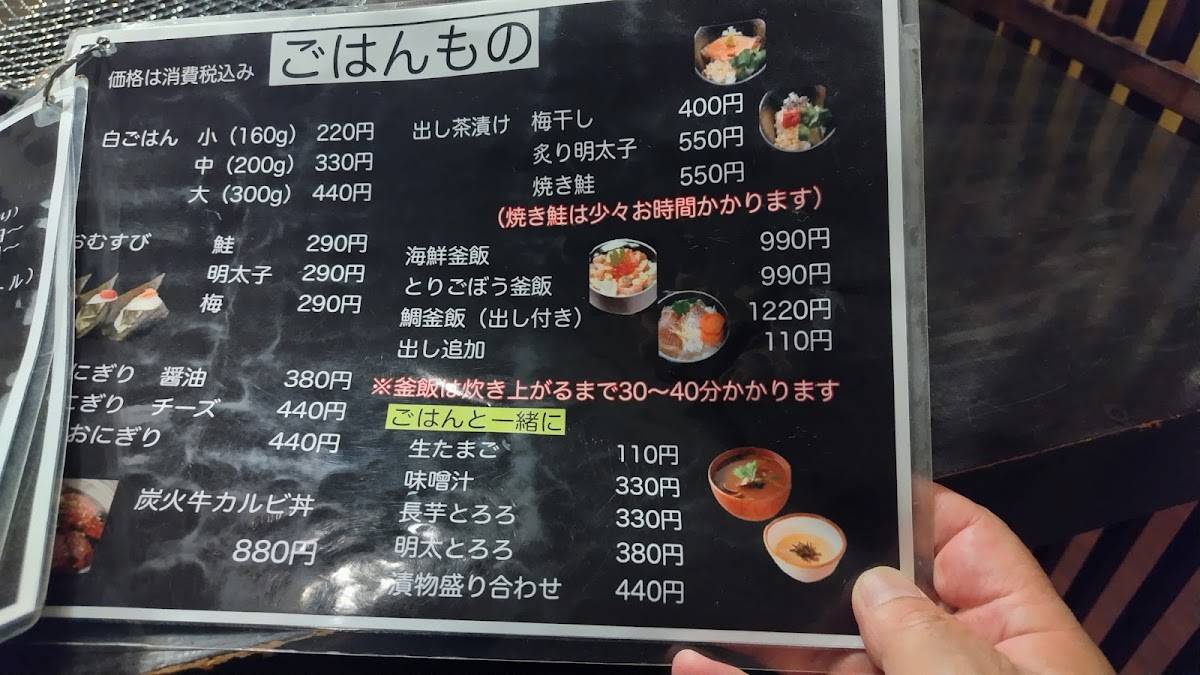 ごはんもの
価格は消費税込み
白ごはん 小（160g） 220円
中（200g） 330円
大（300g） 440円
おむすび 鮭 290円
明太子 290円
梅 290円
にぎり 醤油 380円
にぎり チーズ 440円
おにぎり 440円
炭火牛カルビ丼
880円
出し茶漬け 梅干し 400円
炙り明太子 550円
焼き鮭 550円
（焼き鮭は少々お時間かかります）
海鮮釜飯 990円
とりごぼう釜飯 990円
鯛釜飯（出し付き） 1220円
出し追加 110円
※釜飯は炊き上がるまで30〜40分かかります
ごはんと一緒に
生たまご 110円
味噌汁 330円
長芋とろろ 330円
明太とろろ 380円
漬物盛り合わせ 440円